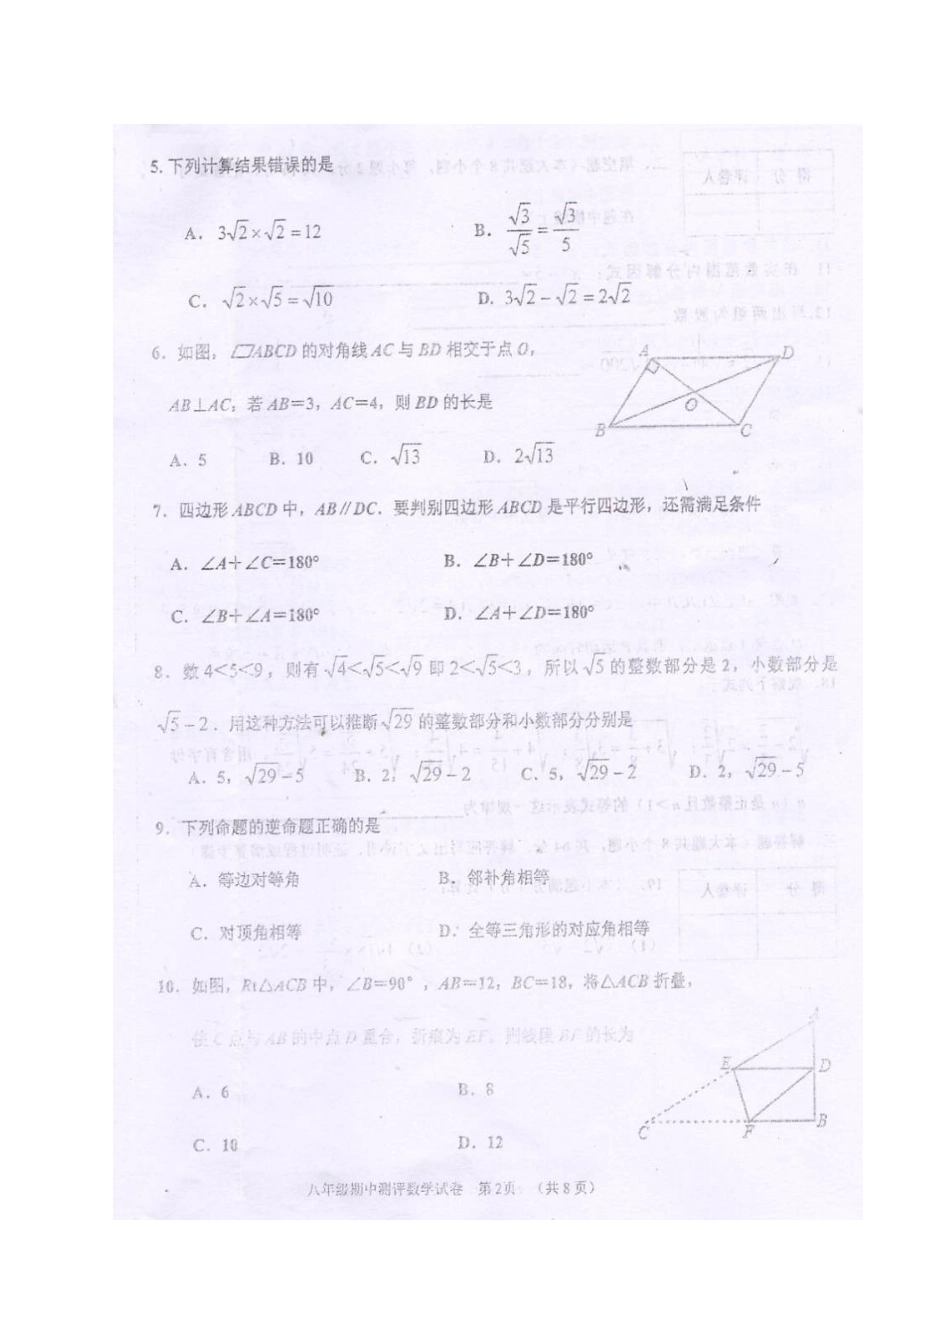 5. 下列计算结果错误的是
A. 3√2×√2=12 B. √3/√5=√3/5
C. √2×√5=√10 D. 3√2-√2=2√2
6. 如图，▱ABCD的对角线AC与BD相交于点O，
AB⊥AC，若AB=3，AC=4，则BD的长是
A D O B C
A. 5 B. 10 C. √13 D. 2√13
7. 四边形ABCD中，AB∥DC．要判别四边形ABCD是平行四边形，还需满足条件
A. ∠A+∠C=180° B. ∠B+∠D=180°
C. ∠B+∠A=180° D. ∠A+∠D=180°
8. 数4<5<9，则有√4<√5<√9即2<√5<3，所以√5的整数部分是2，小数部分是
√5-2．用这种方法可以推断√29的整数部分和小数部分分别是
A. 5，√29-5 B. 2，√29-2 C. 5，√29-2 D. 2，√29-5
9. 下列命题的逆命题正确的是
A. 等边对等角 B. 邻补角相等
C. 对顶角相等 D. 全等三角形的对应角相等
10. 如图，Rt△ACB中，∠B=90°，AB=12，BC=18，将△ACB折叠，
使C点与AB的中点D重合，折痕为EF，则线段BF的长为
A E D C F B
A. 6 B. 8
C. 10 D. 12
八年级期中测评数学试卷 第2页 （共8页）